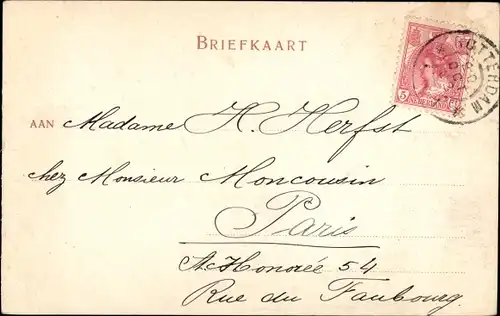 BRIEFKAART
5 NEDERLAND
ROTTERDAM
AAN Madame H. Herfst
chez Monsieur Moncousin
Paris
St Honorée 54
Rue du Faubourg.